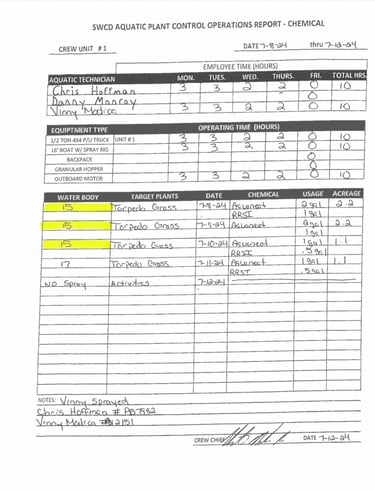 SWCD AQUATIC PLANT CONTROL OPERATIONS REPORT - CHEMICAL
CREW UNIT #1 DATE 7-8-24 thru 7-12-24
EMPLOYEE TIME (HOURS)
AQUATIC TECHNICIAN MON. TUES. WED. THURS. FRI. TOTAL HRS.
Chris Hoffman 3 3 2 2 0 10
Danny Monroy 0
Vinny Madica 3 3 2 2 0 10
EQUIPTMENT TYPE OPERATING TIME (HOURS)
1/2 TON 4X4 P/U TRUCK UNIT # 1 3 3 2 2 0 10
16' BOAT W/ SPRAY RIG 3 3 2 2 0 10
BACKPACK 0
GRANULAR HOPPER 0
OUTBOARD MOTOR 3 3 2 2 0 10
WATER BODY TARGET PLANTS DATE CHEMICAL USAGE ACREAGE
15 Torpedo Grass 7-8-24 2gal 2.2
RRSI 1gal
15 Torpedo Grass 2gal 2.2
1gal
15 Torpedo Grass 7-10-24 1gal 1.1
.5gal
17 Torpedo Grass 7-11-24 1gal 1.1
.5gal
NO Spray Activities 7-12-24
NOTES: Vinny Sprayed
Chris Hoffman # PB7982
Vinny Madica
CREW CHIEF DATE 7-12-24